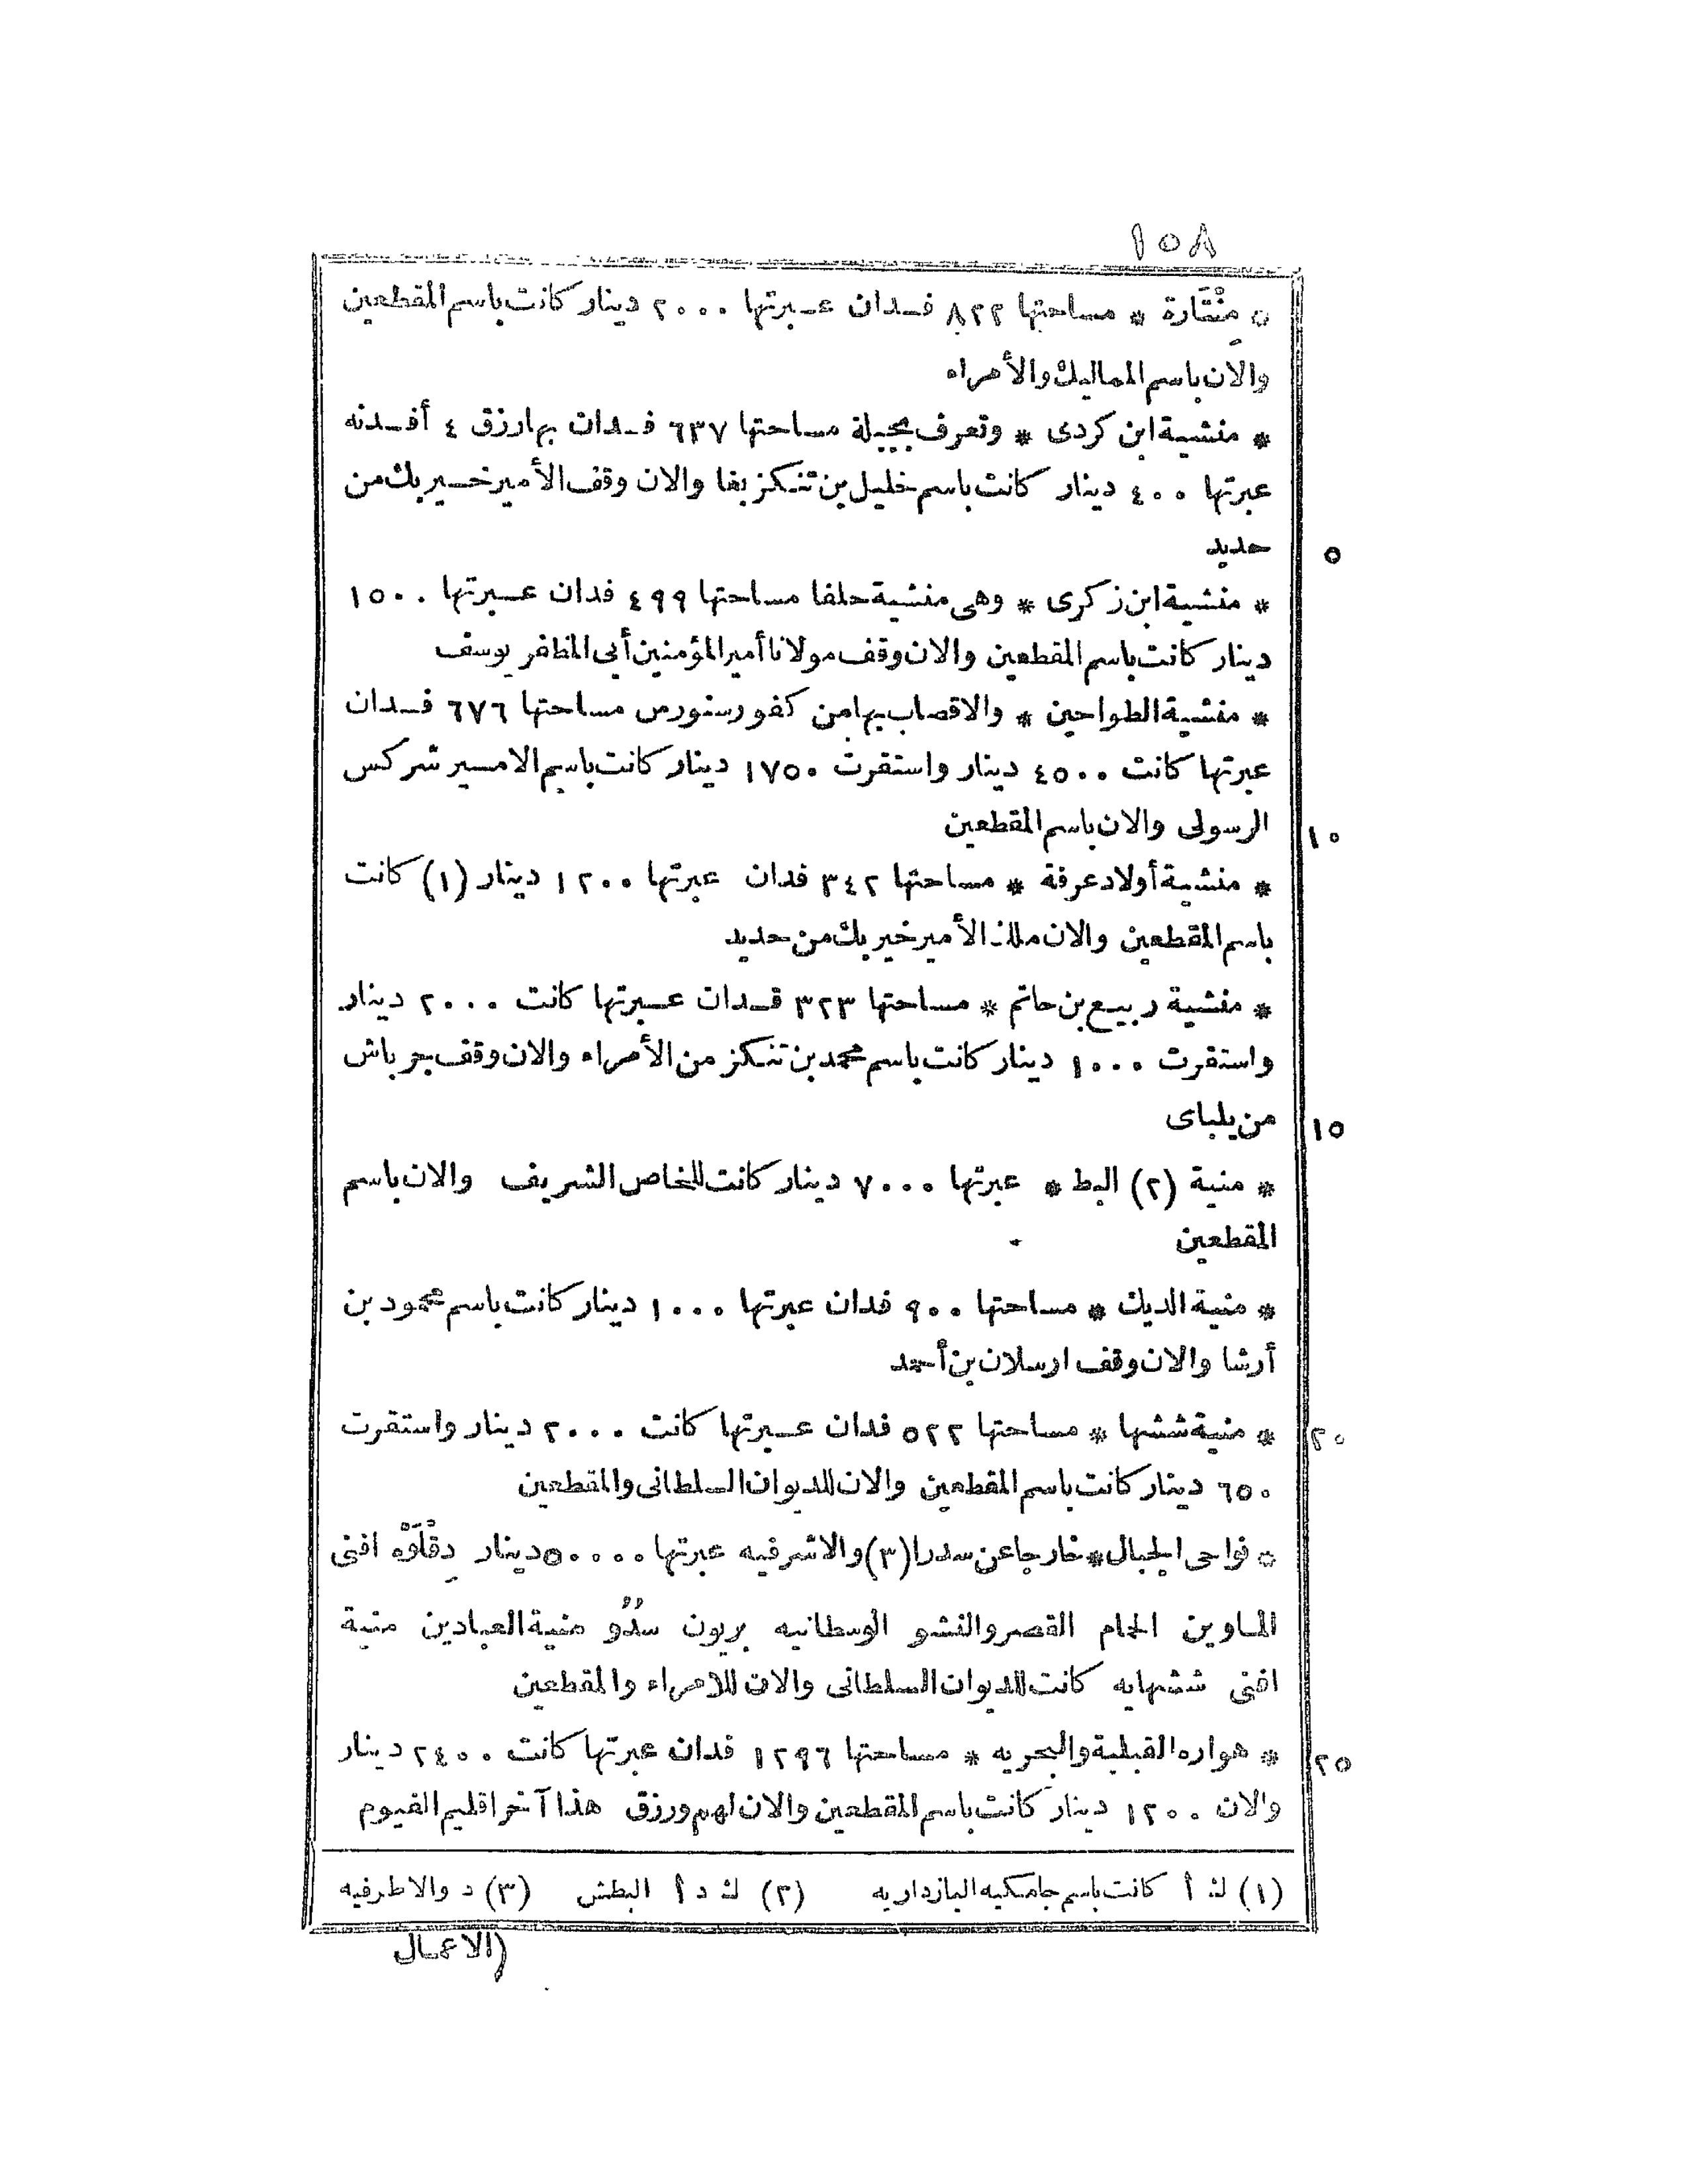 ١٥٨
* مِنْتَارة * مساحتها ٨٢٢ فدان عبرتها ٢٠٠٠ دينار كانت باسم المقطعين
والان باسم المماليك والأمراء
* منشية ابن كردى * وتعرف بمجيلة مساحتها ٦٣٧ فدان بها رزق ٤ أفدنه
عبرتها ٤٠٠ دينار كانت باسم خليل بن تنكز بغا والان وقف الأمير خير بك من
حديد
٥
* منشية ابن زكرى * وهى منشية حلفا مساحتها ٤٩٩ فدان عبرتها ١٥٠٠
دينار كانت باسم المقطعين والان وقف مولانا أمير المؤمنين أبى المظفر يوسف
* منشية الطواحين * والاقصاب بها من كفور سنورس مساحتها ٦٧٦ فدان
عبرتها كانت ٤٥٠٠ دينار واستقرت ١٧٥٠ دينار كانت باسم الامير شركس
الرسولى والان باسم المقطعين
١٠
* منشية أولاد عرفة * مساحتها ٣٤٢ فدان عبرتها ١٢٠٠ دينار (١) كانت
باسم المقطعين والان ملك الأمير خير بك من حديد
* منشية ربيع بن حاتم * مساحتها ٣٢٣ فدان عبرتها كانت ٢٠٠٠ دينار
واستقرت ١٠٠٠ دينار كانت باسم محمد بن تنكز من الأمراء والان وقف جرباش
من يلباى
١٥
* منية (٢) البط * عبرتها ٧٠٠٠ دينار كانت للخاص الشريف والان باسم
المقطعين
* منية الديك * مساحتها ٩٠٠ فدان عبرتها ١٠٠٠ دينار كانت باسم محمود بن
أرشا والان وقف ارسلان بن أحمد
* منية ششها * مساحتها ٥٢٢ فدان عبرتها كانت ٢٠٠٠ دينار واستقرت
٢٠
٦٥٠ دينار كانت باسم المقطعين والان للديوان السلطانى والمقطعين
* نواحى الجبال * خارجا عن سدرا (٣) والاشرفيه عبرتها ٥٠٠٠٠ دينار دِقْلَوْه افنى
الماوين الحمام القصر والنشو الوسطانيه بريون سدُو منية العبادين منية
افنى ششهايه كانت للديوان السلطانى والان للامراء والمقطعين
* هواره القبلية والبحريه * مساحتها ١٢٩٦ فدان عبرتها كانت ٢٤٠٠ دينار
٢٥
والان ١٢٠٠ دينار كانت باسم المقطعين والان لهم ورزق هذا آخر اقليم الفيوم
(١) ك أ كانت باسم جامكيه البازداريه (٢) ك د أ البطش (٣) د والاطرفيه
(الاعمال